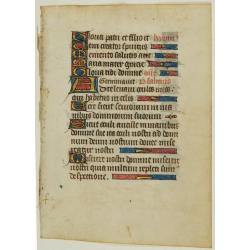 Gloria patri et filio et
Memento salutis
Maria mater gracie
Gloria tibi domine
Ad te levavi oculos
qui habitas in celis
Ecce sicut servorum in ma
nibus dominorum suorum
Sicut oculi ancille in manibus
domine sue ita oculi nostri ad domi
num deum nostrum donec mise
reatur nostri
Miserere nostri domine miserere
nostri quia multum repleti sum
despectione